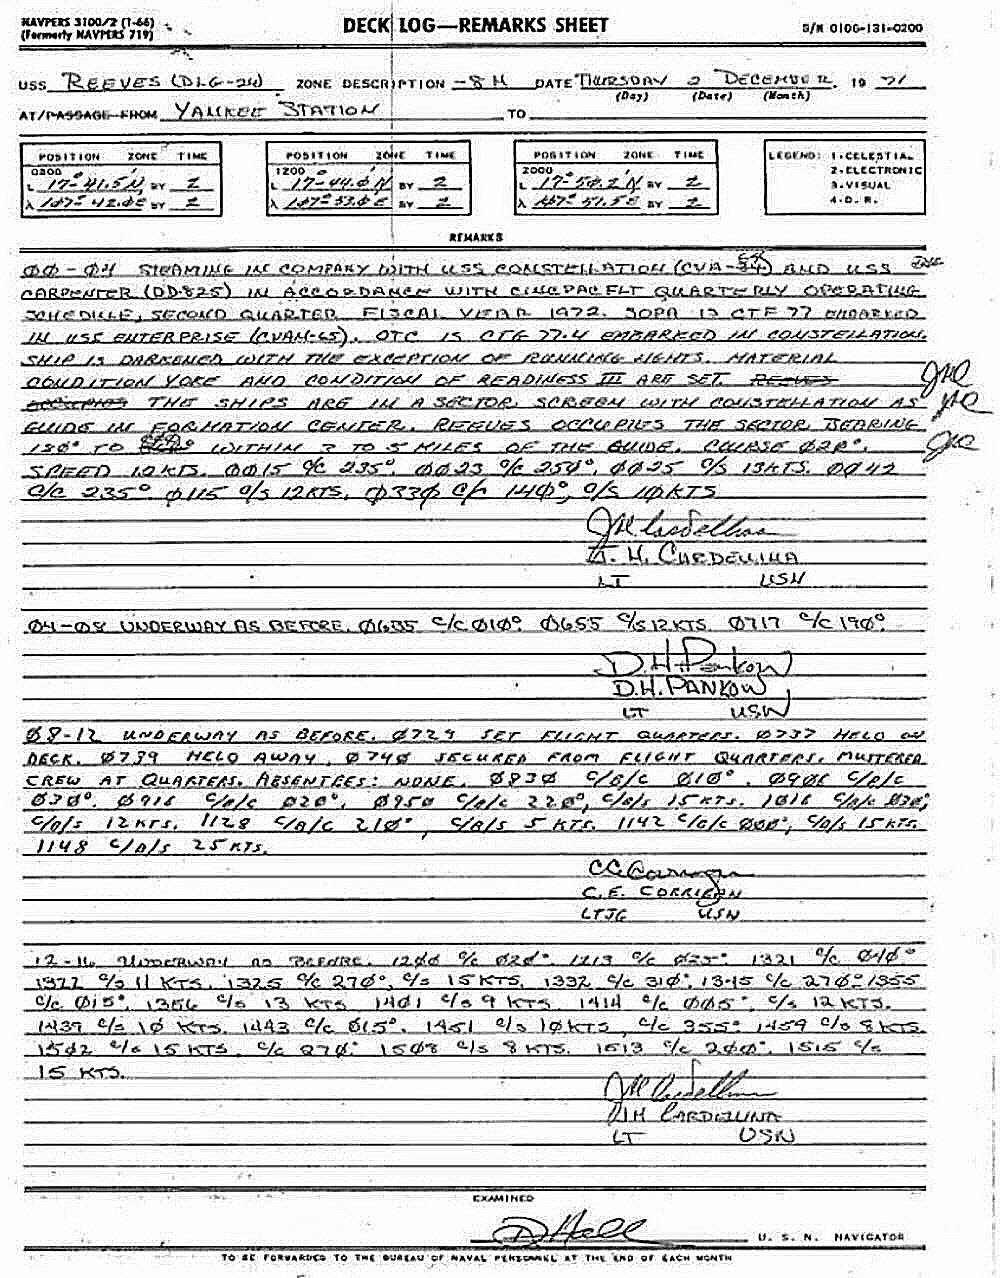 NAVPERS 3100/2 (1-66)
(Formerly NAVPERS 719)
DECK LOG—REMARKS SHEET
S/N 0106-131-0200
USS REEVES (DLG-24) ZONE DESCRIPTION -8 H DATE THURSDAY 2 DECEMBER, 19 71
(Day) (Date) (Month)
AT/PASSAGE FROM YANKEE STATION TO
POSITION ZONE TIME
0800
L 17-41.5'N BY 2
λ 107°-42.0'E BY 2
POSITION ZONE TIME
1200
L 17-44.0'N BY 2
λ 107°-53.0'E BY 2
POSITION ZONE TIME
2000
L 17°-50.2'N BY 2
λ 107°-51.5'E BY 2
LEGEND: 1-CELESTIAL
2-ELECTRONIC
3-VISUAL
4-D. R.
REMARKS
00-04 STEAMING IN COMPANY WITH USS CONSTELLATION (CVA-64) AND USS
CARPENTER (DD-825) IN ACCORDANCE WITH CINCPACFLT QUARTERLY OPERATING
SCHEDULE, SECOND QUARTER FISCAL YEAR 1972. SOPA IS CTF 77 EMBARKED
IN USS ENTERPRISE (CVAN-65). OTC IS CTG 77.4 EMBARKED IN CONSTELLATION.
SHIP IS DARKENED WITH THE EXCEPTION OF RUNNING LIGHTS. MATERIAL
CONDITION YOKE AND CONDITION OF READINESS III ARE SET. REEVES
OCCUPIES THE SHIPS ARE IN A SECTOR SCREEN WITH CONSTELLATION AS
GUIDE IN FORMATION CENTER. REEVES OCCUPIES THE SECTOR BEARING
130° TO WITHIN 3 TO 5 MILES OF THE GUIDE. COURSE 020°.
SPEED 12 KTS. 0015 C/C 235°. 0023 C/C 250°. 0025 C/S 13 KTS. 0042
C/C 235° 0115 C/S 12 KTS. 0330 C/C 140°, C/S 10 KTS
J. H. CARDELLINA
LT USN
04-08 UNDERWAY AS BEFORE. 0635 C/C 010° 0655 C/S 12 KTS. 0717 C/C 190°.
D.H. Pankow
D.H. PANKOW
LT USN
08-12 UNDERWAY AS BEFORE. 0729 SET FLIGHT QUARTERS. 0737 HELO ON
DECK. 0739 HELO AWAY. 0740 SECURED FROM FLIGHT QUARTERS. MUSTERED
CREW AT QUARTERS. ABSENTEES: NONE. 0830 C/A/C 010°. 0906 C/A/C
030°. 0916 C/A/C 020°. 0950 C/A/C 220°, C/A/S 15 KTS. 1016 C/A/C 030°,
C/A/S 12 KTS. 1128 C/A/C 210°, C/A/S 5 KTS. 1142 C/A/C 000°, C/A/S 15 KTS.
1148 C/A/S 25 KTS.
C. E. CORRIGAN
LTJG USN
12-16 UNDERWAY AS BEFORE. 1200 C/C 020°. 1213 C/C 025° 1321 C/C 040°
1322 C/S 11 KTS. 1325 C/C 270°, C/S 15 KTS. 1332 C/C 310°. 1345 C/C 270° 1355
C/C 015°. 1356 C/S 13 KTS 1401 C/S 9 KTS. 1414 C/C 005°, C/S 12 KTS.
1439 C/S 10 KTS. 1443 C/C 015°. 1451 C/S 10 KTS, C/C 355° 1459 C/S 8 KTS.
1502 C/S 15 KTS. C/C 270°. 1508 C/S 8 KTS. 1513 C/C 200°. 1515 C/S
15 KTS.
JH CARDELLINA
LT USN
EXAMINED
D Hall U. S. N. NAVIGATOR
TO BE FORWARDED TO THE BUREAU OF NAVAL PERSONNEL AT THE END OF EACH MONTH